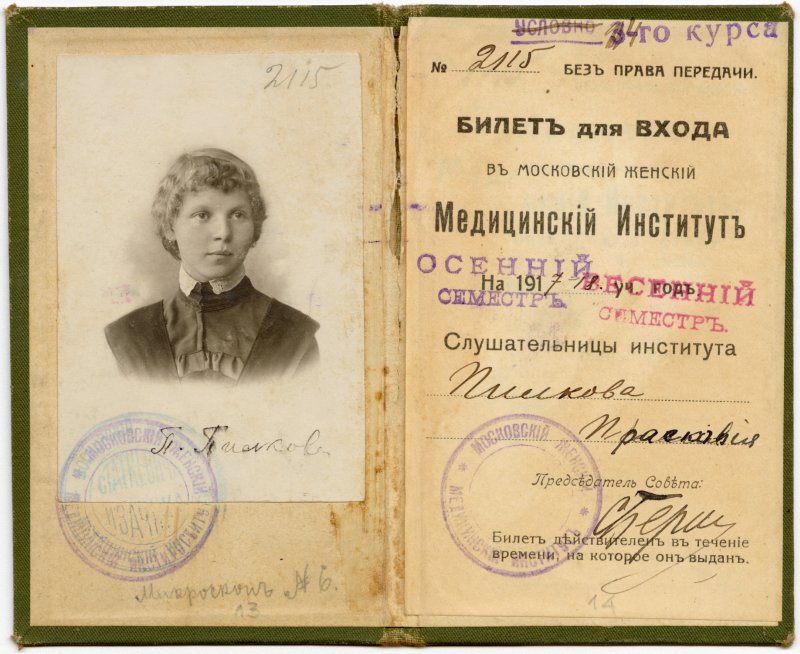 2115
П. Пилкова
МОСКОВСКІЙ ЖЕНСКІЙ
МЕДИЦИНСКІЙ ИНСТИТУТЪ
Микроскопъ № 6.
13
УСЛОВНО 3-го курса
№ 2115 БЕЗЪ ПРАВА ПЕРЕДАЧИ.
БИЛЕТЪ для ВХОДА
ВЪ МОСКОВСКІЙ ЖЕНСКІЙ
Медицинскій Институтъ
ОСЕННІЙ
СЕМЕСТРЪ.
На 1917-18 уч. годъ
ВЕСЕННІЙ
СЕМЕСТРЪ.
Слушательницы института
Пилкова
Прасковія
МОСКОВСКІЙ ЖЕНСКІЙ
МЕДИЦИНСКІЙ ИНСТИТУТЪ
Предсѣдатель Совѣта:
Билетъ дѣйствителенъ въ теченіе
времени, на которое онъ выданъ.
14